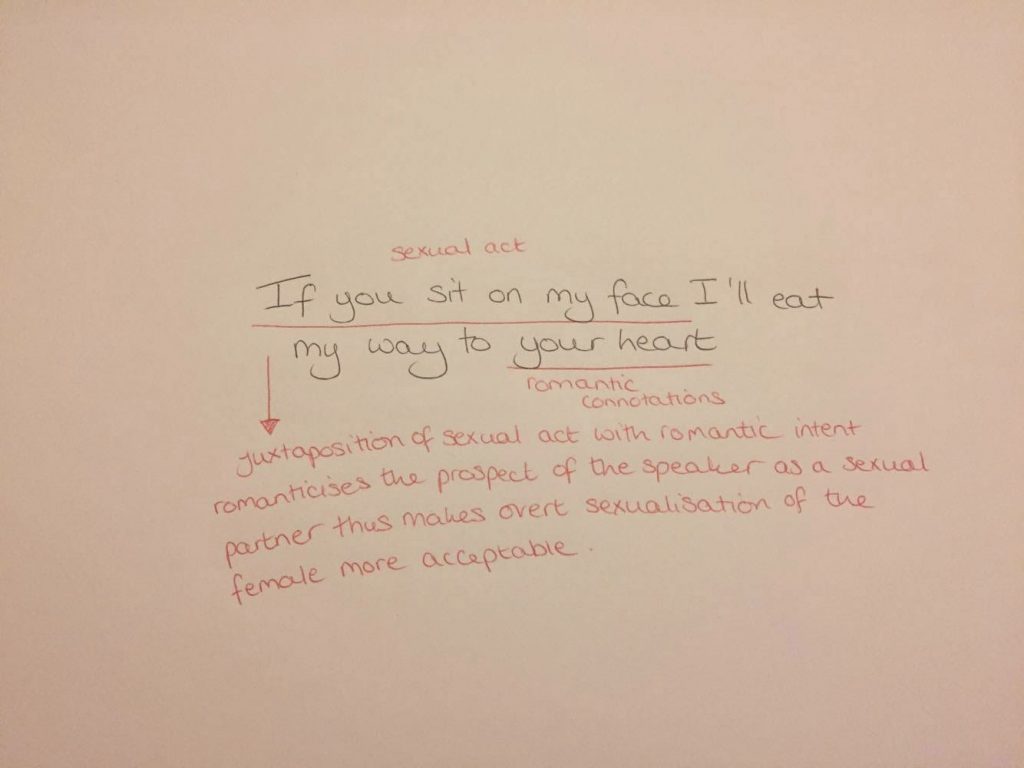 sexual act
If you sit on my face I'll eat
my way to your heart
romantic
connotations
juxtaposition of sexual act with romantic intent
romanticises the prospect of the speaker as a sexual
partner thus makes overt sexualisation of the
female more acceptable.